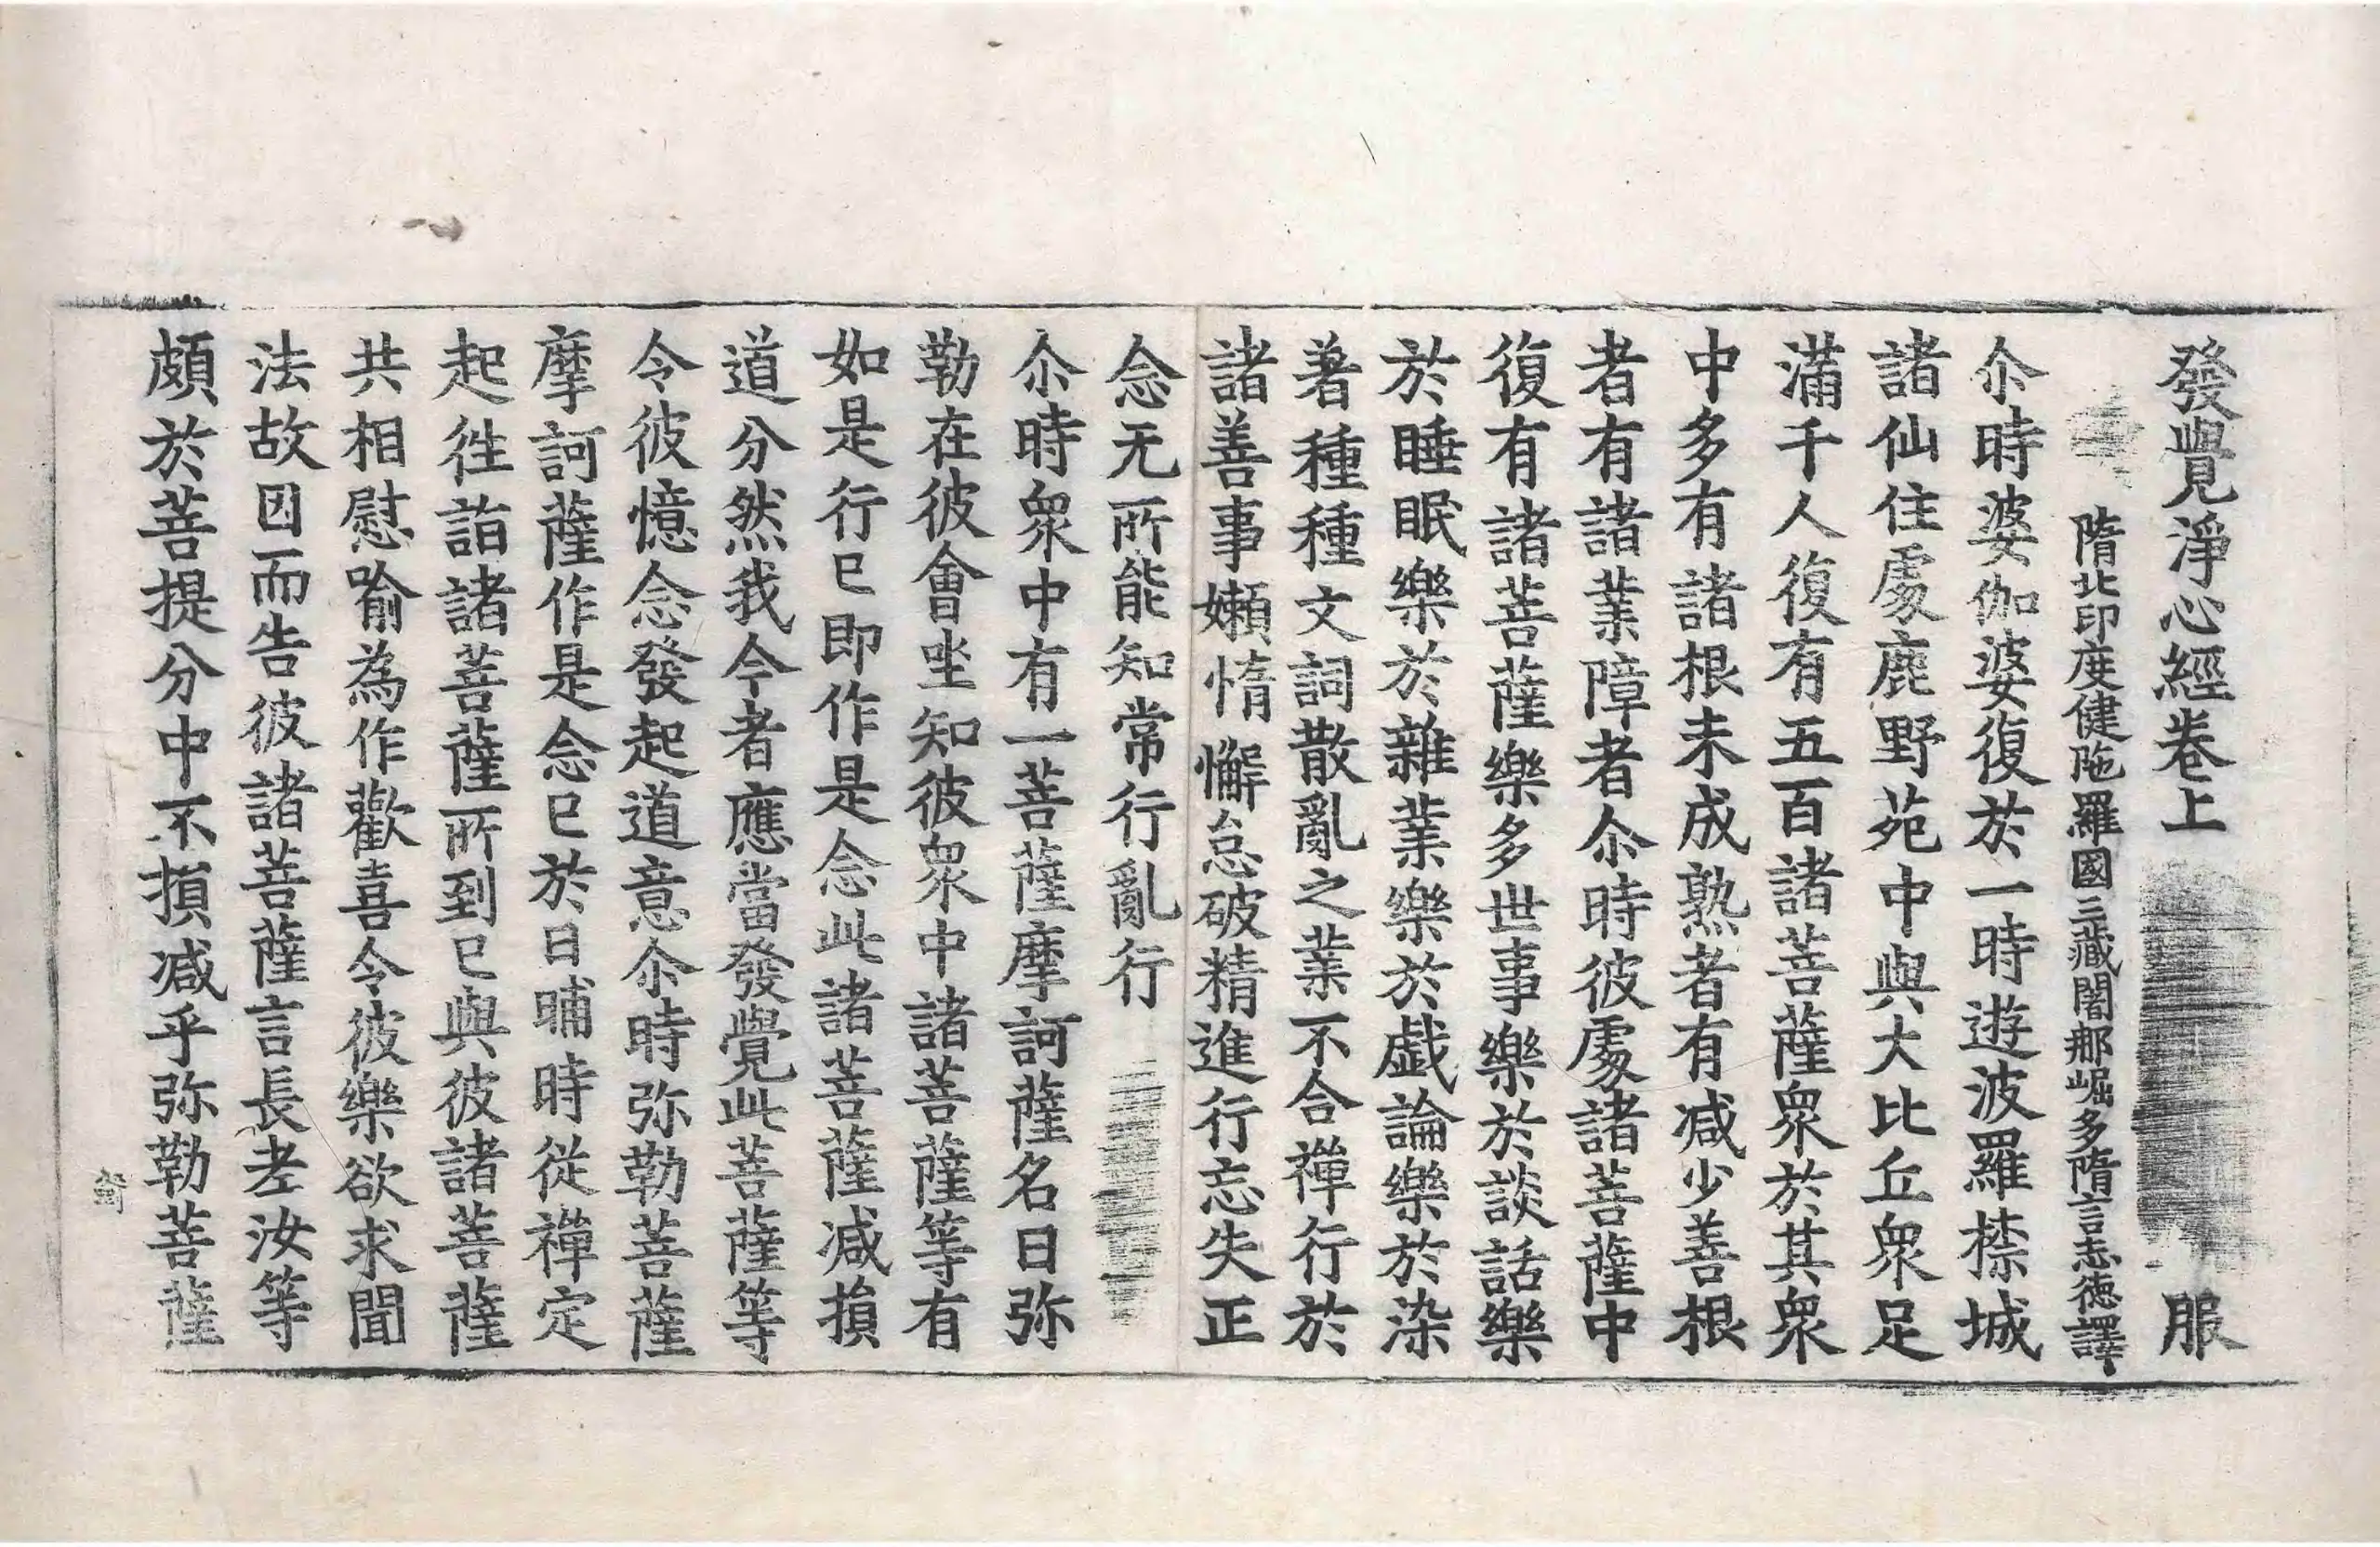 發覺淨心經卷上 服
隋北印度健陁羅國三藏闍那崛多隋言志德譯
尒時婆伽婆復於一時遊波羅㮈城
諸仙住處鹿野苑中與大比丘衆足
滿千人復有五百諸菩薩衆於其衆
中多有諸根未成熟者有减少善根
者有諸業障者尒時彼處諸菩薩中
復有諸菩薩樂多世事樂於談話樂
於睡眠樂於雜業樂於戱論樂於染
著種種文詞散亂之業不合禪行於
諸善事嬾惰懈怠破精進行忘失正
念无所能知常行亂行
尒時衆中有一菩薩摩訶薩名曰弥
勒在彼會坐知彼衆中諸菩薩等有
如是行已即作是念此諸菩薩减損
道分然我今者應當發覺此菩薩等
令彼憶念發起道意尒時弥勒菩薩
摩訶薩作是念已於日晡時從禪定
起往詣諸菩薩所到已與彼諸菩薩
共相慰喻為作歡喜令彼樂欲求聞
法故因而告彼諸菩薩言長老汝等
頗於菩提分中不損减乎弥勒菩薩